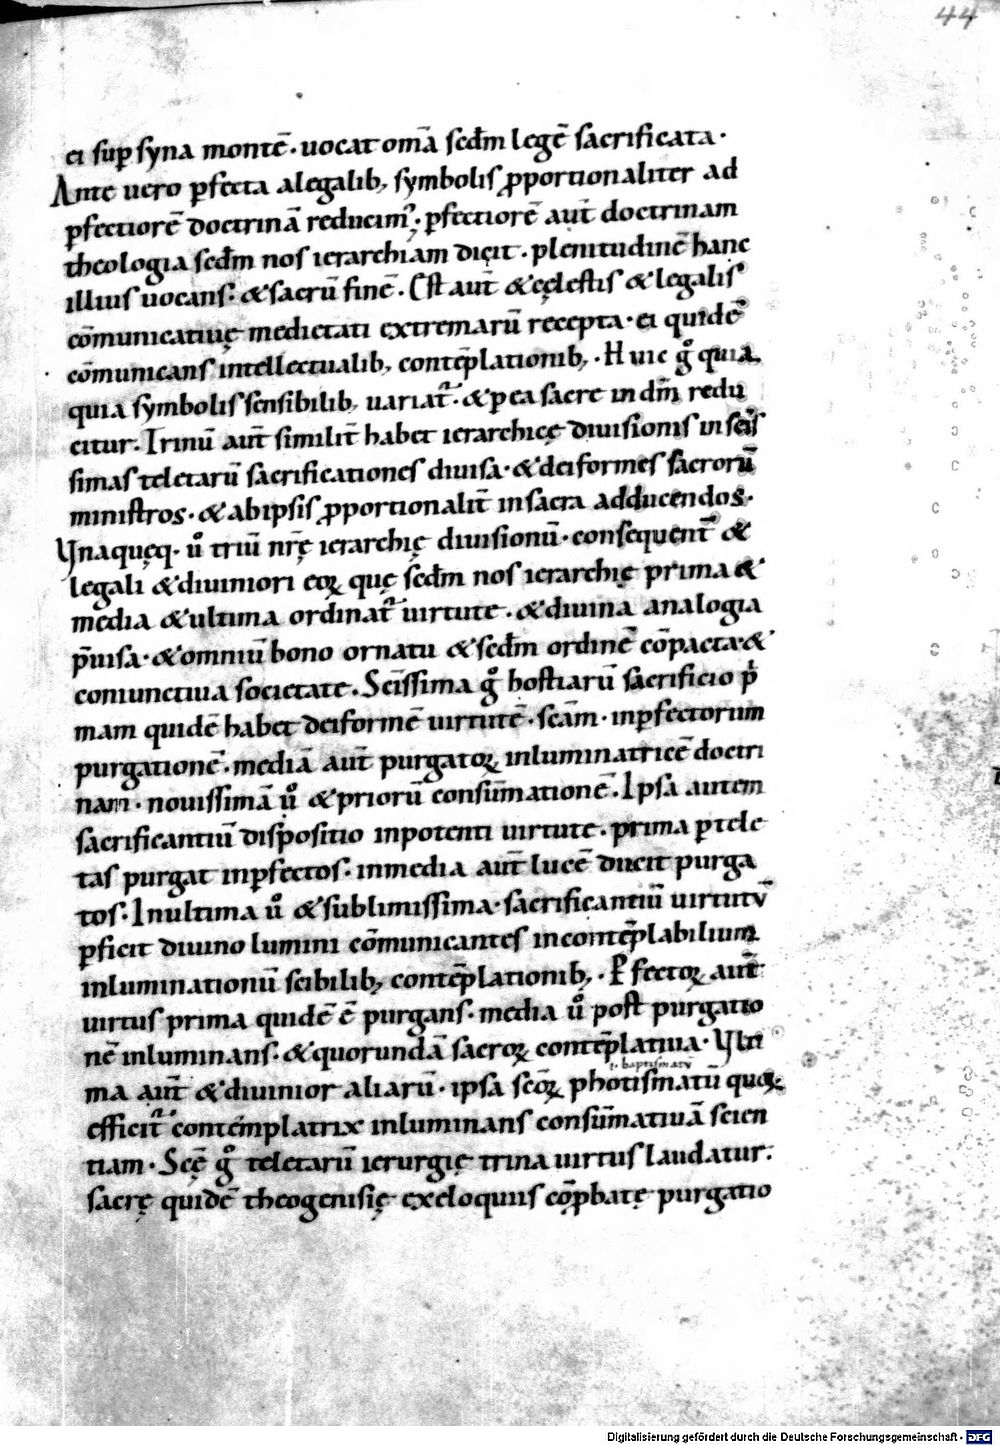 44
ei sup̱ syna montē· uocat om̄a scd̄m legē sacrificata·
Ante uero ꝑfecta a legalib; symbolis ꝓportionaliter ad
ꝑfectiorē doctrinā reducim᷒· ꝑfectiorē aut̄ doctrinam
theologia scd̄m nos ierarchiam dicit· plenitudinē hanc
illius uocans· & sacrū finē· Est aut̄ & cęlestis & legalis
cōmunicatiuę medietati extremarū recepta· ei quidē
cōmunicans intellectualib; contēplationib;· Huic g̊ quia
quia symbolis sensibilib; uariat̄· & ꝑ ea sacre in dm̄ redu
citur· Trinū aut̄ similit̄ habet ierarchicę diuisionis in scis̄
simas teletarū sacrificationes diuisa· & deiformes sacrorū
ministros· & ab ipsis ꝓportionalit̄ in sacra adducendos·
Ynaquęq· ů triū nrę̄ ierarchię diuisionū· consequent̄ &
legali & diuiniori eoꝝ quę scd̄m nos ierarchię prima &
media & ultima ordinat̄ uirtute· & diuina analogia
p̄uisa· & omniū bono ornatu & scd̄m ordinē cōpacta· &
coniunctiua societate· Scīssima g̊ hostiarū sacrificio pͥ
mam quidē habet deiformē uirtutē· scām· inꝑfectorum
purgationē· mediā aut̄ purgatoꝝ inluminatricē doctri
nam· nouissimā ů & priorū consūmationē· Ipsa autem
sacrificantiū dispositio in potenti uirtute· prima ꝑ tele
tas purgat inꝑfectos· in media aut̄ lucē ducit purga
tos· In ultima ů & sublimissima· sacrificantiū uirtutū
ꝑficit diuino lumini cōmunicantes in contēplabilium
inluminationū scibilib; contēplationib;· Pfectoꝝ aut̄
uirtus prima quidē ē purgans· media ů post purgatio
nē inluminans· & quorundā sacroꝝ contēplatiua· Ylti
i. baptismatū
ma aut̄ & diuinior aliarū· ipsa scōꝝ photismatū quoꝝ
efficit̄ contemplatrix inluminans consūmatiuā scien
tiam· Scę̄ g̊ teletarū ierurgię trina uirtus laudatur·
sacrę quidē theogenisię ex eloquiis cōꝓbatę purgatio
Digitalisierung gefördert durch die Deutsche Forschungsgemeinschaft · DFG